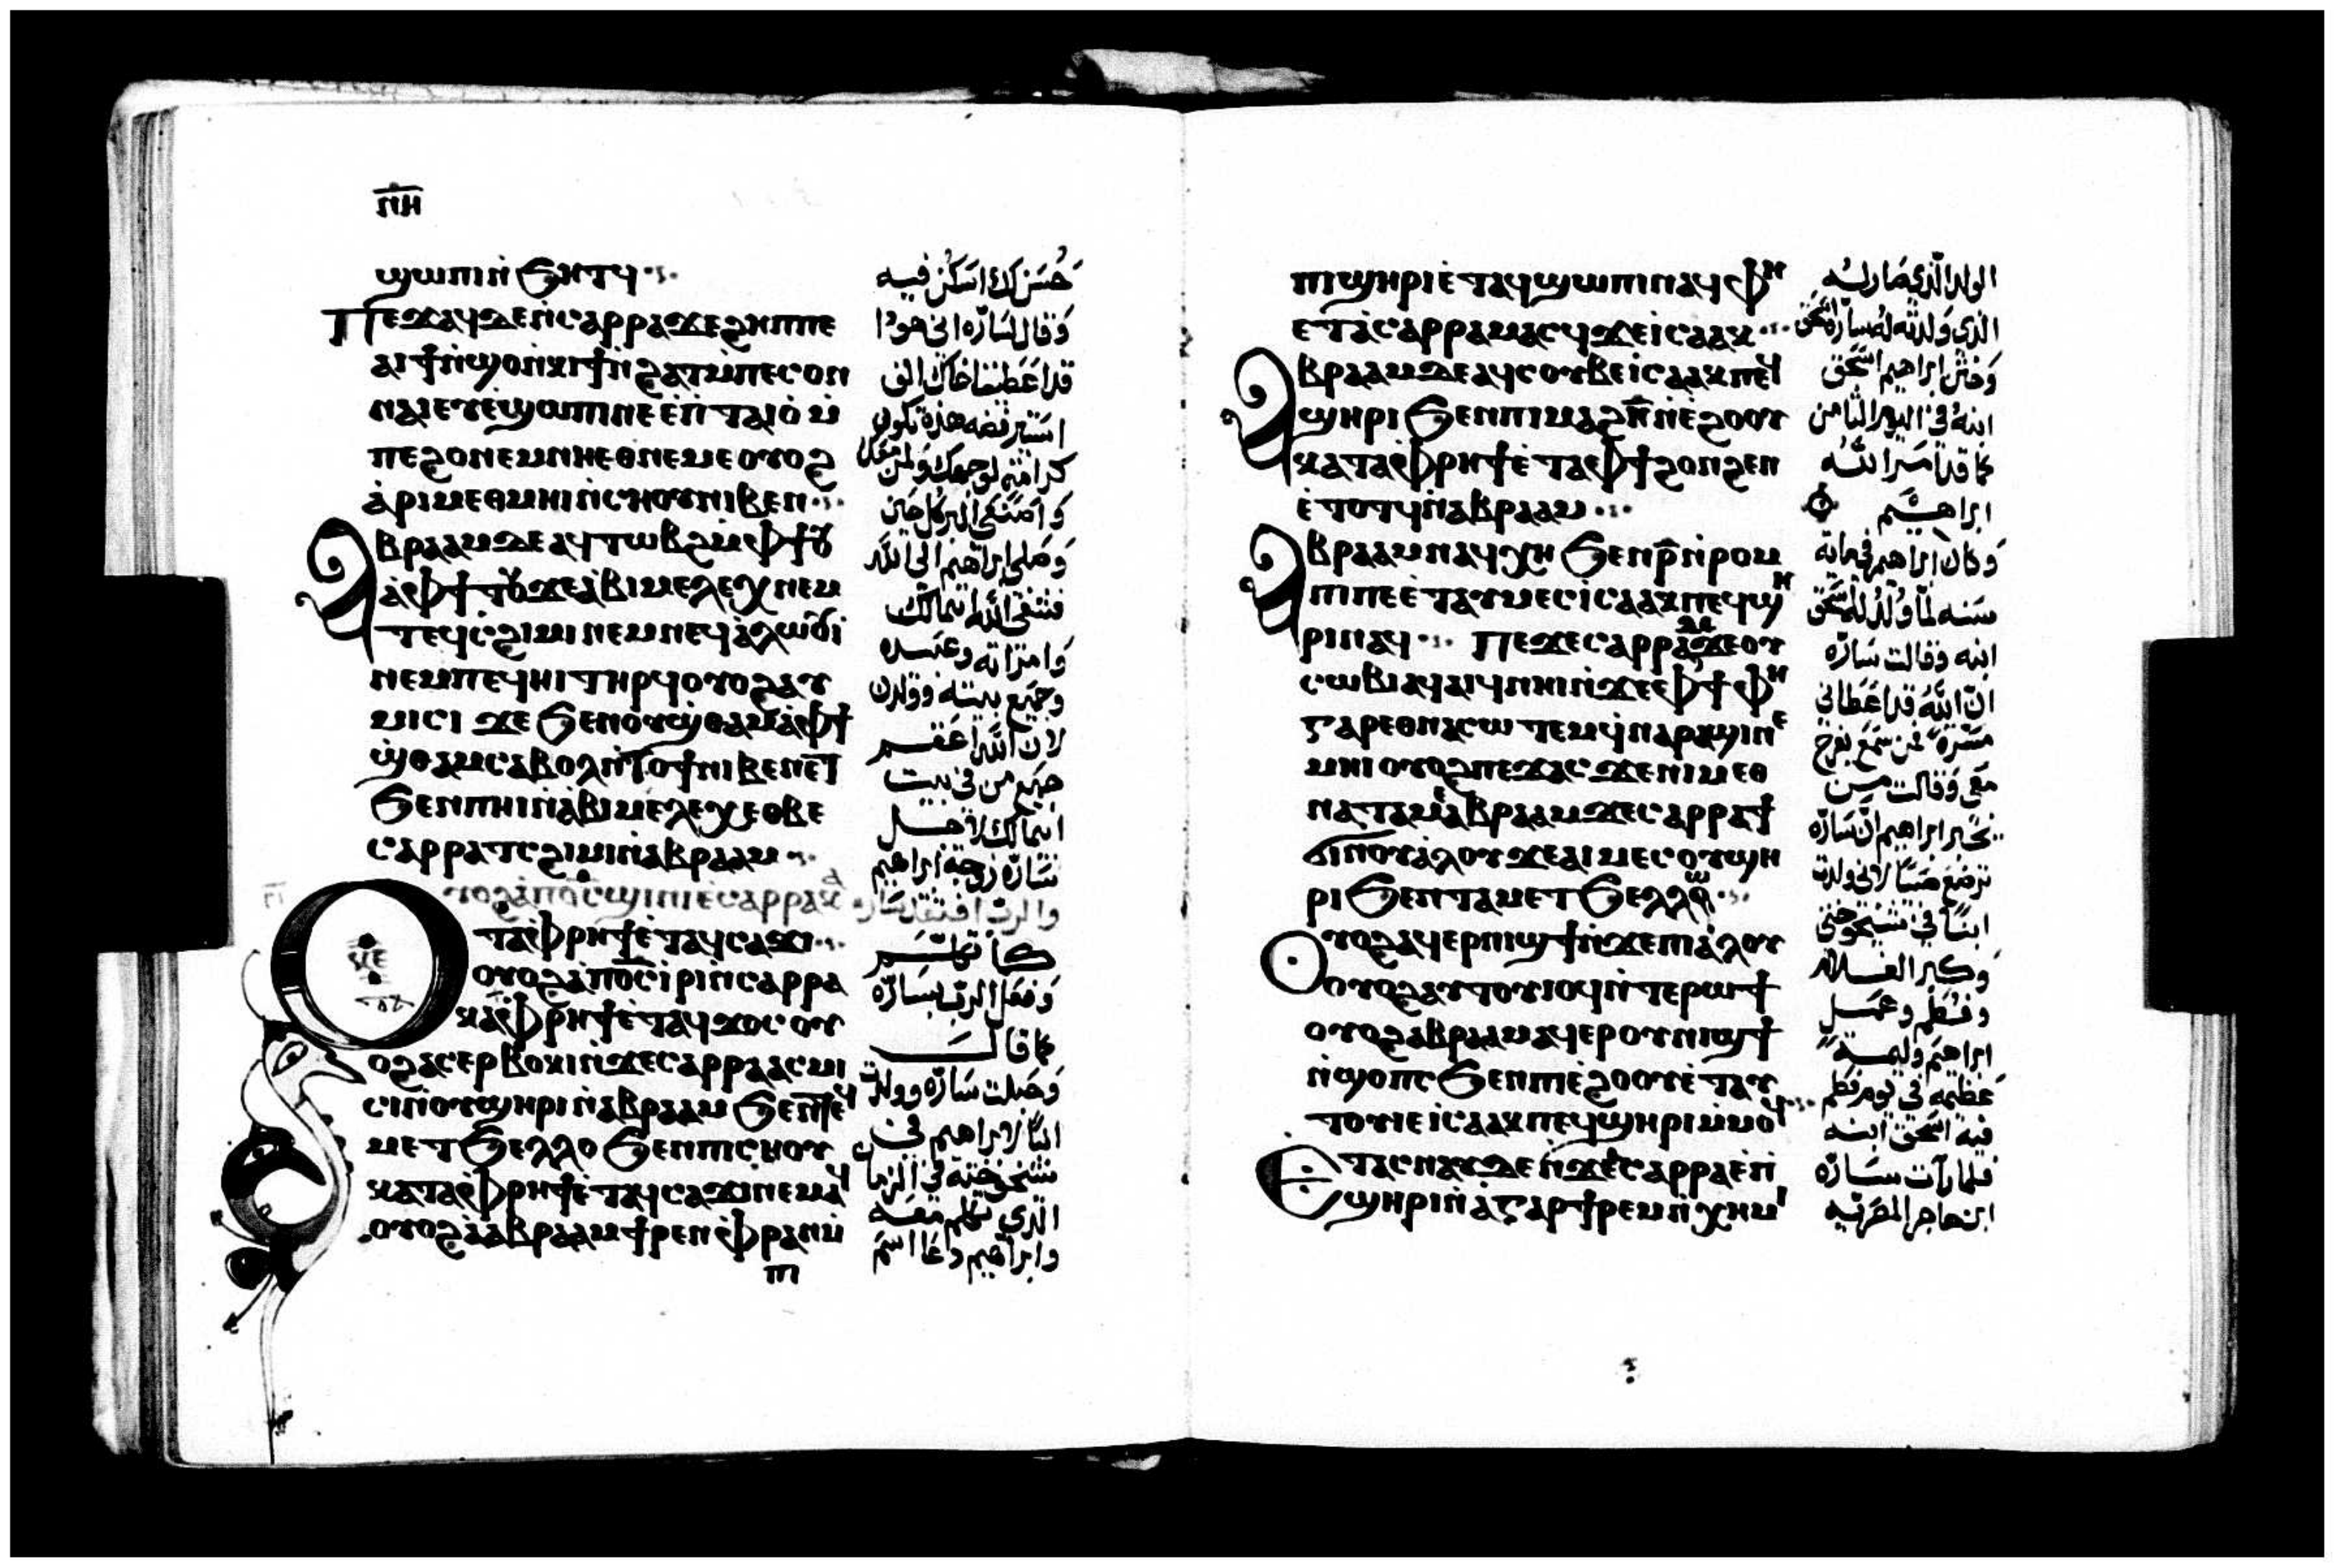 ⲛⲏ
ϣⲱⲡⲓ ⲛ̀ϧⲏⲧϥ
Ⲡⲉϫⲁϥ ⲇⲉ ⲛ̀ⲥⲁⲣⲣⲁ ϫⲉ ϩⲏⲡⲡⲉ
ⲁⲓϯ ⲛ̀ϣⲟ ⲛ̀ⲕⲓϯ ⲛ̀ϩⲁⲧ ⲙ̀ⲡⲉⲥⲟⲛ
ⲛⲁⲓ ⲉⲩⲉ̀ϣⲱⲡⲓ ⲛⲉ ⲉ̀ⲡ̀ⲧⲁⲓⲟ̀ ⲙ̀
ⲡⲉϩⲟ ⲛⲉⲙ ⲛⲏ ⲉⲑⲛⲉⲙⲉ ⲟⲩⲟϩ
ⲁ̀ⲣⲓ ⲙⲉⲑⲙⲏⲓ ⲛ̀ⲥⲏⲟⲩ ⲛⲓⲃⲉⲛ
Ⲁⲃⲣⲁⲁⲙ ⲇⲉ ⲁϥⲧⲱⲃϩ ⲙ̀ⲫϯ
ⲁ̀ⲫϯ ⲧⲟⲩϫⲉ ⲁ̀ⲃⲓⲙⲉⲗⲉⲭ ⲛⲉⲙ
ⲧⲉϥⲥ̀ϩⲓⲙⲓ ⲛⲉⲙ ⲛⲉϥⲁ̀ⲗⲱⲟⲩⲓ̀
ⲛⲉⲙ ⲡⲉϥⲏⲓ ⲧⲏⲣϥ ⲟⲩⲟϩ ⲁⲩ
ⲙⲓⲥⲓ ϫⲉ ϧⲉⲛ ⲟⲩϣ̀ⲑⲁⲙ ⲁ̀ⲫϯ
ϣ̀ⲑⲁⲙ ⲥⲁⲃⲟⲗ ⲛ̀ⲟϯ ⲛⲓⲃⲉⲛ ⲉⲧ
ϧⲉⲛ ⲡⲏⲓ ⲛ̀ⲁⲃⲓⲙⲉⲗⲉⲭ ⲉⲑⲃⲉ
ⲥⲁⲣⲣⲁ ⲧⲥϩⲓⲙⲓ ⲛ̀ⲁⲃⲣⲁⲁⲙ
Ⲟⲩⲟϩ ⲁ̀ⲡⲟ̅ⲥ̅ ϣⲓⲛⲓ ⲉ̀ⲥⲁⲣⲣⲁ ⲕ
ⲧⲁ ⲫⲣⲏϯ ⲉ̀ⲧⲁϥⲥⲁϫⲓ
ⲟⲩⲟϩ ⲁ̀ⲡⲟ̅ⲥ̅ ⲓⲣⲓ ⲛ̀ⲥⲁⲣⲣⲁ
ⲕⲁ ⲫⲣⲏϯ ⲉ̀ⲧⲁϥϫⲟⲥ ⲟⲩ
ⲟϩ ⲁⲥⲉⲣⲃⲟⲕⲓ ⲛ̀ϫⲉ ⲥⲁⲣⲣⲁ ⲁⲥⲙⲓ
ⲥⲓ ⲛ̀ⲟⲩϣⲏⲣⲓ ⲛ̀ⲁⲃⲣⲁⲁⲙ ϧⲉⲛ ⲧⲉϥ
ⲙⲉⲧϧⲉⲗⲗⲟ ϧⲉⲛ ⲡⲓⲥⲏⲟⲩ
ⲕⲁⲧⲁ ⲫⲣⲏϯ ⲉ̀ⲧⲁϥⲥⲁϫⲓ ⲛⲉⲙⲁϥ
ⲟⲩⲟϩ ⲁ̀ⲁⲃⲣⲁⲁⲙ ϯⲣⲉⲛ ⲉ̀ⲫⲣⲁⲛ ⲙ̀
ⲡⲓ
حُسَن لك اسكن فيه
وقال لسارّه اني هوذا
قد اعطيت اخاك الف
استير فضه هذه تكون
كرامة لوجهك ولمن معك
واصنعي البر كل حين
وصلى ابراهيم الى الله
فشفى الله ابيمالك
وامراته وعبيده
وجميع بيته وولدن
لان الله اعقم
جميع من في بيت
ابيمالك لاجل
سارّه زوجة ابراهيم
والرب افتقد ساره
كما تكلم
وفعل الرب بسارّه
كما قال
وحبلت سارّه وولدت
ابنًا لابراهيم في
شيخوخته في الزمان
الذي تكلم معه
وابراهيم دعا اسم
ⲡⲓϣⲏⲣⲓ ⲉ̀ⲧⲁϥϣⲱⲡⲓ ⲛⲁϥ ⲫⲏ
ⲉⲧⲁ̀ⲥⲁⲣⲣⲁ ⲙⲁⲥϥ ϫⲉ ⲓⲥⲁⲁⲕ
Ⲁⲃⲣⲁⲁⲙ ⲇⲉ ⲁϥⲥⲟⲩⲃⲉ ⲓⲥⲁⲁⲕ ⲡⲉϥ
ϣⲏⲣⲓ ϧⲉⲛ ⲡⲓⲙⲁϩ ⲏ̅ ⲛ̀ⲉ̀ϩⲟⲟⲩ
ⲕⲁⲧⲁ ⲫⲣⲏϯ ⲉ̀ⲧⲁ ⲫϯ ϩⲟⲛϩⲉⲛ
ⲉ̀ⲧⲟⲧϥ ⲛ̀ⲁⲃⲣⲁⲁⲙ
Ⲁⲃⲣⲁⲁⲙ ⲛⲁϥⲭⲏ ϧⲉⲛ ⲣ̅ ⲛ̀ⲣⲟⲙ
ⲡⲓ ⲡⲉ ⲉ̀ⲧⲁⲩⲙⲉⲥ ⲓⲥⲁⲁⲕ ⲡⲉϥϣⲏ
ⲣⲓ ⲛⲁϥ Ⲡⲉϫⲉ ⲥⲁⲣⲣⲁ ⲇⲉ ϫⲉ ⲟⲩ
ⲥⲱⲃⲓ ⲁϥⲁⲓϥ ⲛⲏⲓ ⲛ̀ϫⲉ ⲫϯ ⲫⲏ
ⲅⲁⲣ ⲉⲑⲛⲁⲥⲱⲧⲉⲙ ϥ̀ⲛⲁⲣⲁϣⲓ ⲛⲉ
ⲙⲏⲓ ⲟⲩⲟϩ ⲡⲉϫⲁⲥ ϫⲉ ⲛⲓⲙ ⲉⲑ
ⲛⲁⲧⲁⲙⲉ ⲁⲃⲣⲁⲁⲙ ϫⲉ ⲥⲁⲣⲣⲁ ϯ
ϭⲓ ⲛ̀ⲟⲩⲁ̀ⲗⲟⲩ ϫⲉ ⲁⲓⲙⲉⲥ ⲟⲩϣⲏ
ⲣⲓ ϧⲉⲛ ⲧⲁⲙⲉⲧϧⲉⲗⲗⲱ
Ⲟⲩⲟϩ ⲁϥⲉⲣⲛⲓϣϯ ⲛ̀ϫⲉ ⲡⲓⲁ̀ⲗⲟⲩ
ⲟⲩⲟϩ ⲁⲩⲧⲟⲩⲓⲟϥ ⲛ̀ⲧⲉⲣⲱϯ
ⲟⲩⲟϩ ⲁⲃⲣⲁⲁⲙ ⲁϥⲉⲣ ⲟⲩⲛⲓϣϯ
ⲛ̀ϣⲟⲡⲥ ϧⲉⲛ ⲡⲓⲉ̀ϩⲟⲟⲩ ⲉ̀ⲧⲁⲩ
ⲧⲟⲩⲓⲉ ⲓⲥⲁⲁⲕ ⲡⲉϥϣⲏⲣⲓ ⲙ̀ⲙⲟϥ
Ⲉⲧⲁⲥⲛⲁⲩ ⲇⲉ ⲛ̀ϫⲉ ⲥⲁⲣⲣⲁ ⲉ̀ⲡ̀
ϣⲏⲣⲓ ⲛ̀ⲁ̀ⲅⲁⲣ ϯⲣⲉⲙⲛ̀ⲭⲏⲙⲓ
الولد الذي صار له
الذي ولدته له سارّه اسحق
وختن ابراهيم اسحق
ابنه في اليوم الثامن
كما قد امر الله
ابراهيم
وكان ابراهيم في مايه
سنه لمّا ولد له اسحق
ابنه وقالت سارّه
ان الله قد اعطاني
مسرّة فمن سمع يفرح
معي وقالت من
يخبر ابراهيم ان سارّه
ترضع صبيًا لاني ولدت
ابنًا في شيخوختي
وكبر الغلام
وفطم وعمل
ابراهيم وليمة
عظيمه في يوم فطم
فيه اسحق ابنه
فلما رأت سارّه
ابن هاجر المصريه